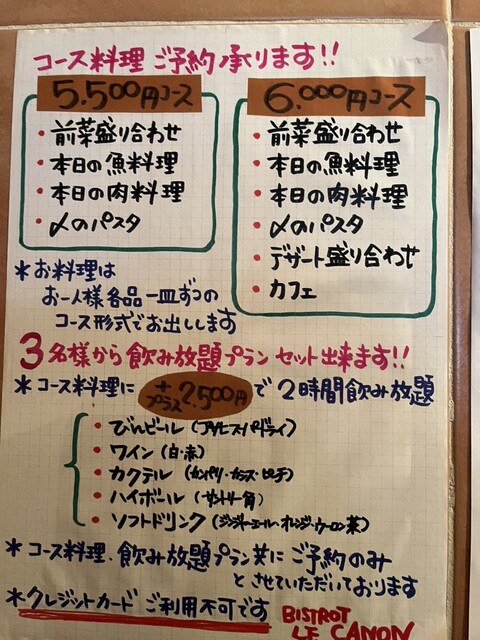 コース料理 ご予約承ります!!
5.500円コース
・前菜盛り合わせ
・本日の魚料理
・本日の肉料理
・〆のパスタ
6.000円コース
・前菜盛り合わせ
・本日の魚料理
・本日の肉料理
・〆のパスタ
・デザート盛り合わせ
・カフェ
*お料理は
お一人様各品一皿ずつの
コース形式でお出しします
3名様から飲み放題プランセット出来ます!!
*コース料理に +プラス2.500円で2時間飲み放題
・びんビール(アサヒスーパードライ)
・ワイン(白・赤)
・カクテル(カンパリ・カシス・ピーチ)
・ハイボール(サントリー角)
・ソフトドリンク(ジンジャーエール・オレンジ・ウーロン茶)
*コース料理、飲み放題プラン共にご予約のみ
とさせていただいております
*クレジットカードご利用不可です
BISTROT
LE CANON